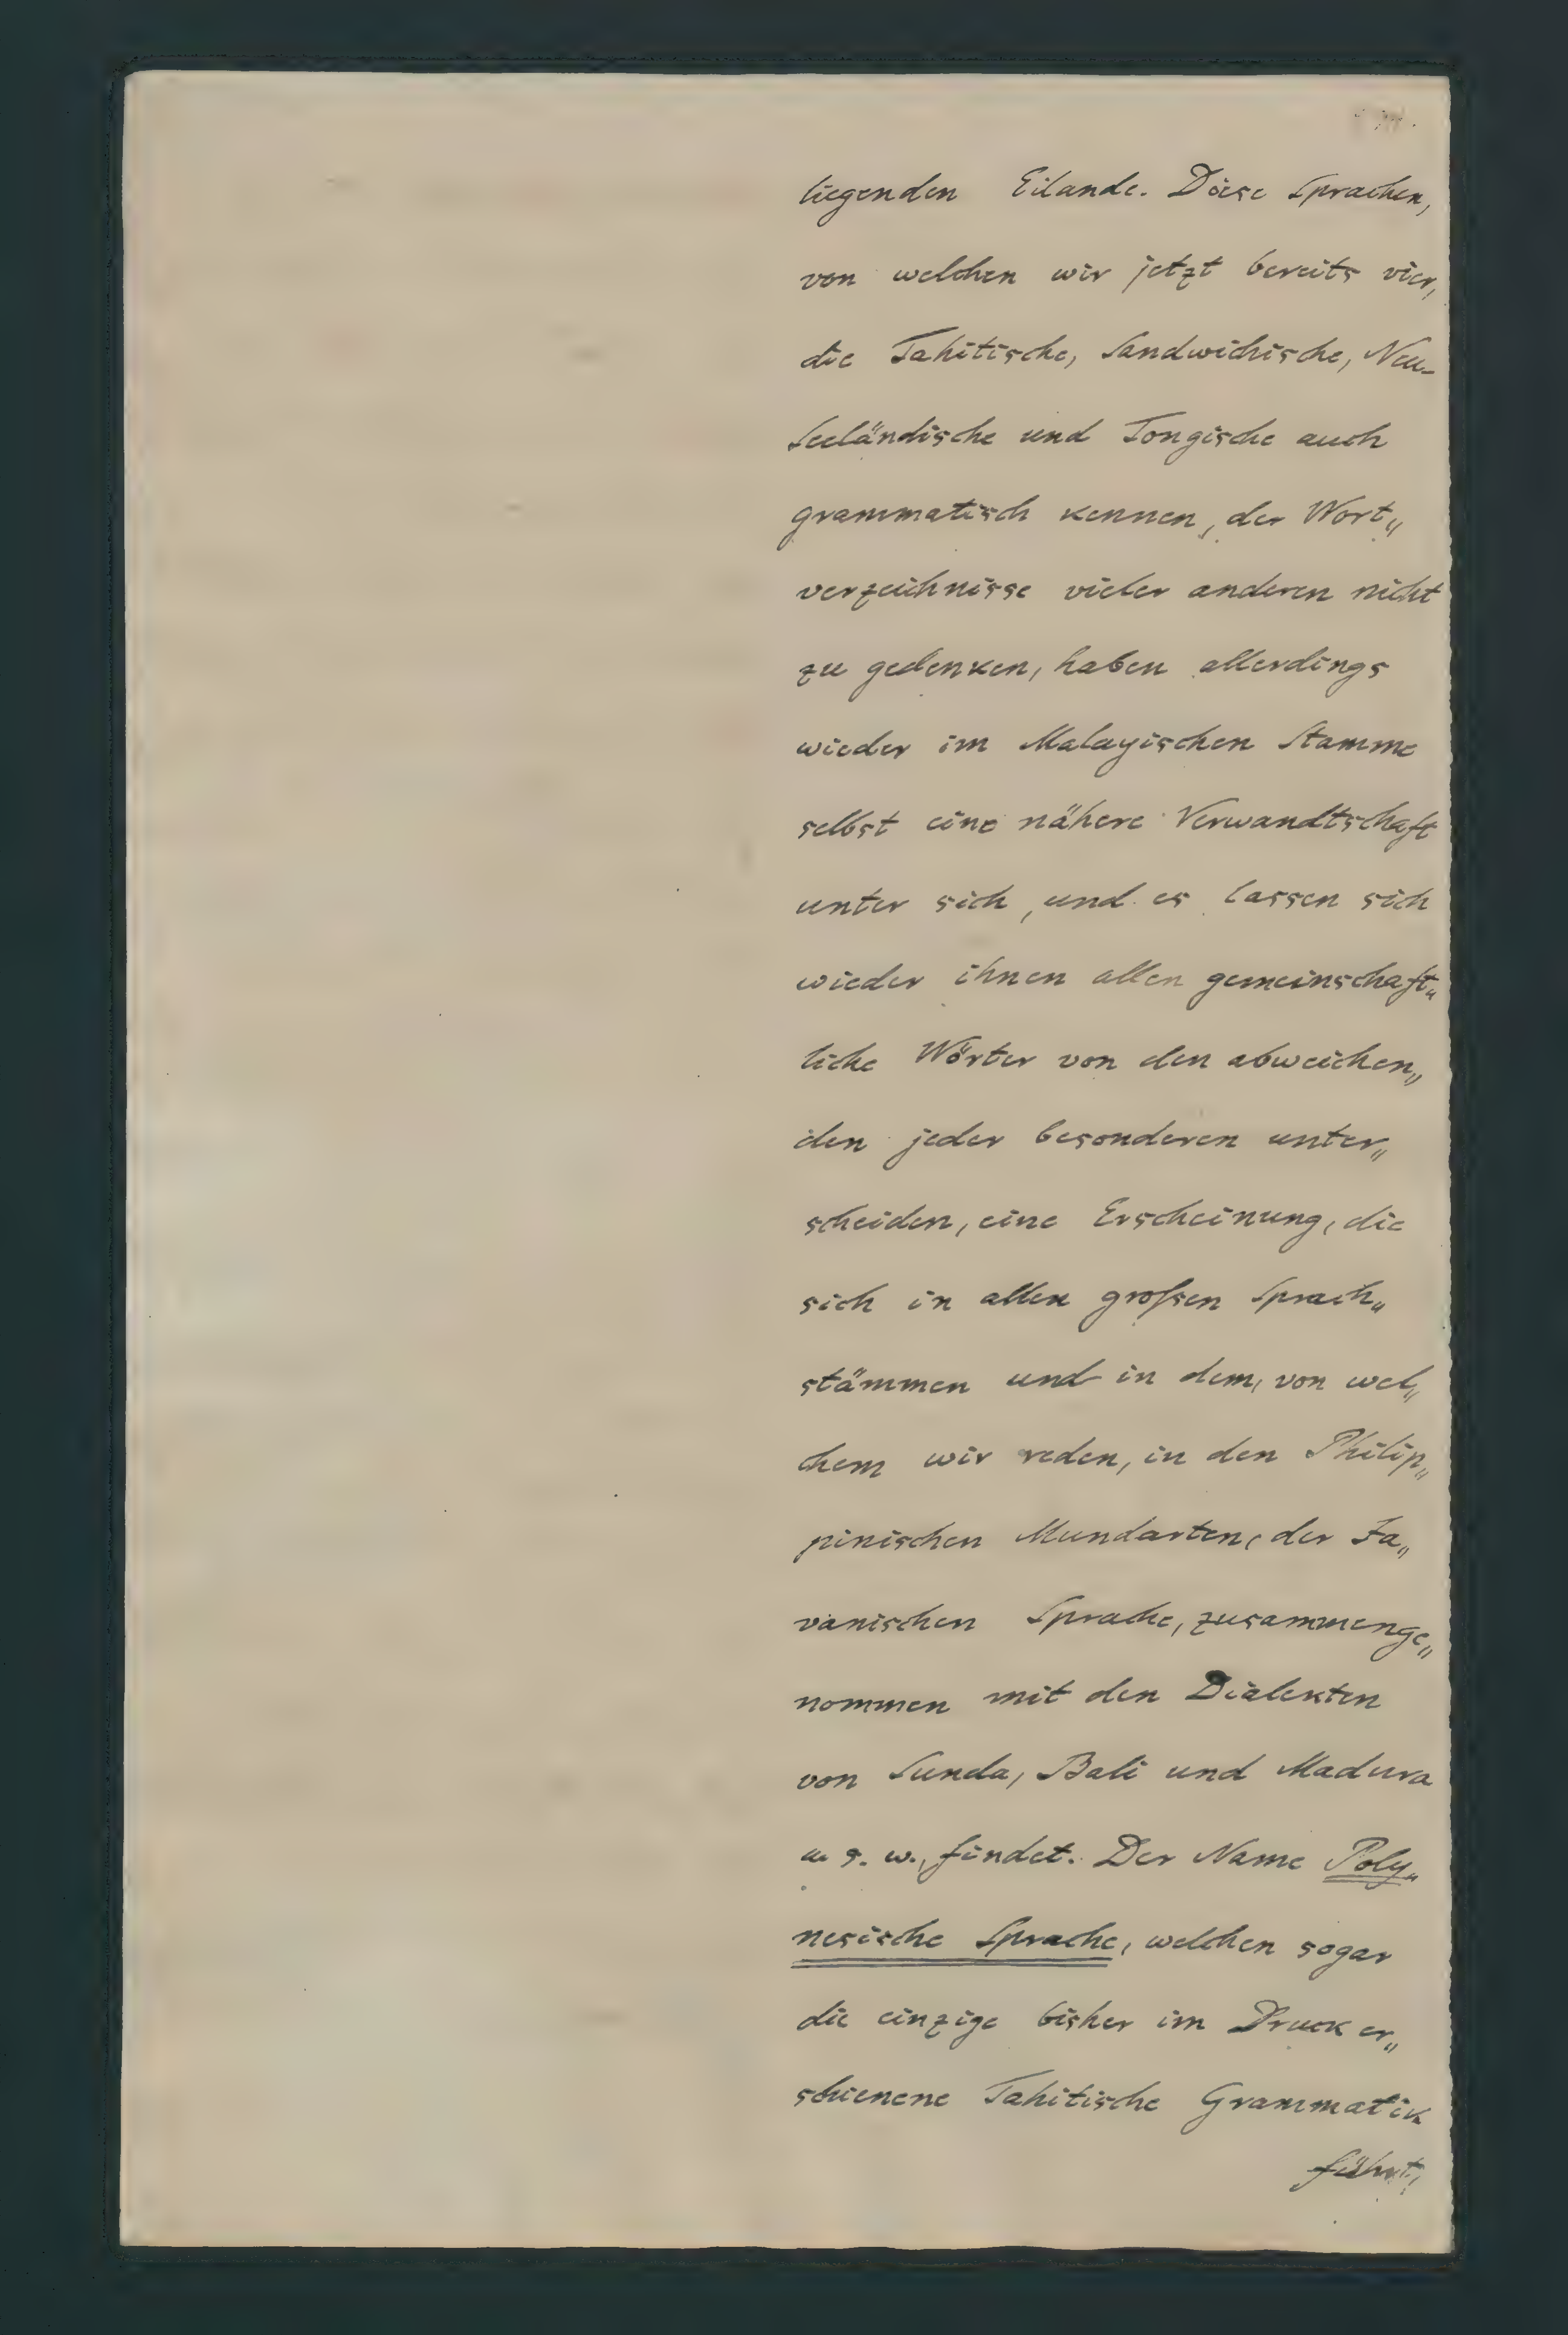 liegenden Eilande. Diese Sprachen,
von welchen wir jetzt bereits vier,
die Tahitische, Sandwichische, Neu-
Seeländische und Tongische auch
grammatisch kennen, der Wort„
verzeichnisse vieler anderen nicht
zu gedenken, haben allerdings
wieder im Malayischen Stamme
selbst eine nähere Verwandtschaft
unter sich, und es lassen sich
wieder ihnen allen gemeinschaft„
liche Wörter von den abweichen„
den jeder besonderen unter„
scheiden, eine Erscheinung, die
sich in allen großen Sprach„
stämmen und in dem, von wel„
chem wir reden, in den Philip„
pinischen Mundarten, der Ja„
vanischen Sprache, zusammenge„
nommen mit den Dialekten
von Sunda, Bali und Madura
u. s. w., findet. Der Name Poly„
nesische Sprache, welchen sogar
die einzige bisher im Druck er„
schienene Tahitische Grammatik
führt,